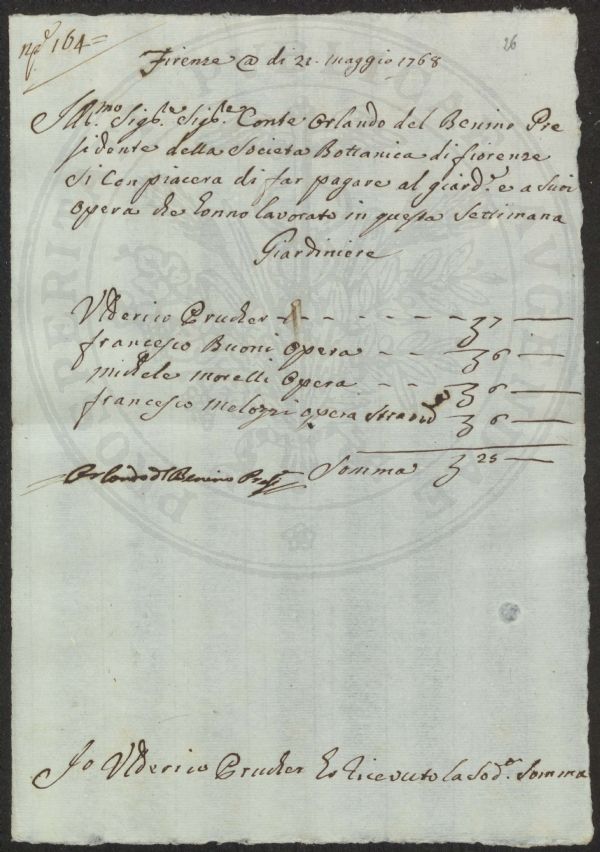 N.º 164=
26
Firenze @ di 21. maggio 1768
Ill.mo Sigr.e Sigr.e Conte Orlando del Benino Pre
sidente della Societa Bottanica di fiorenze
Si Conpiacera di far pagare al giard.e e a Suoi
Opera che hònno lavorato in questa Settimana
Giardiniere
Vlderico Prucker - - - - - - - 7
francesco Buoni Opera - - 6
michele morelli Opera - - 6
francesco melozzi opera Straord 6
Somma 25
Orlando del Benino Pres.
Io Vlderico Prucker ho riceuuto la Sod.a Somma